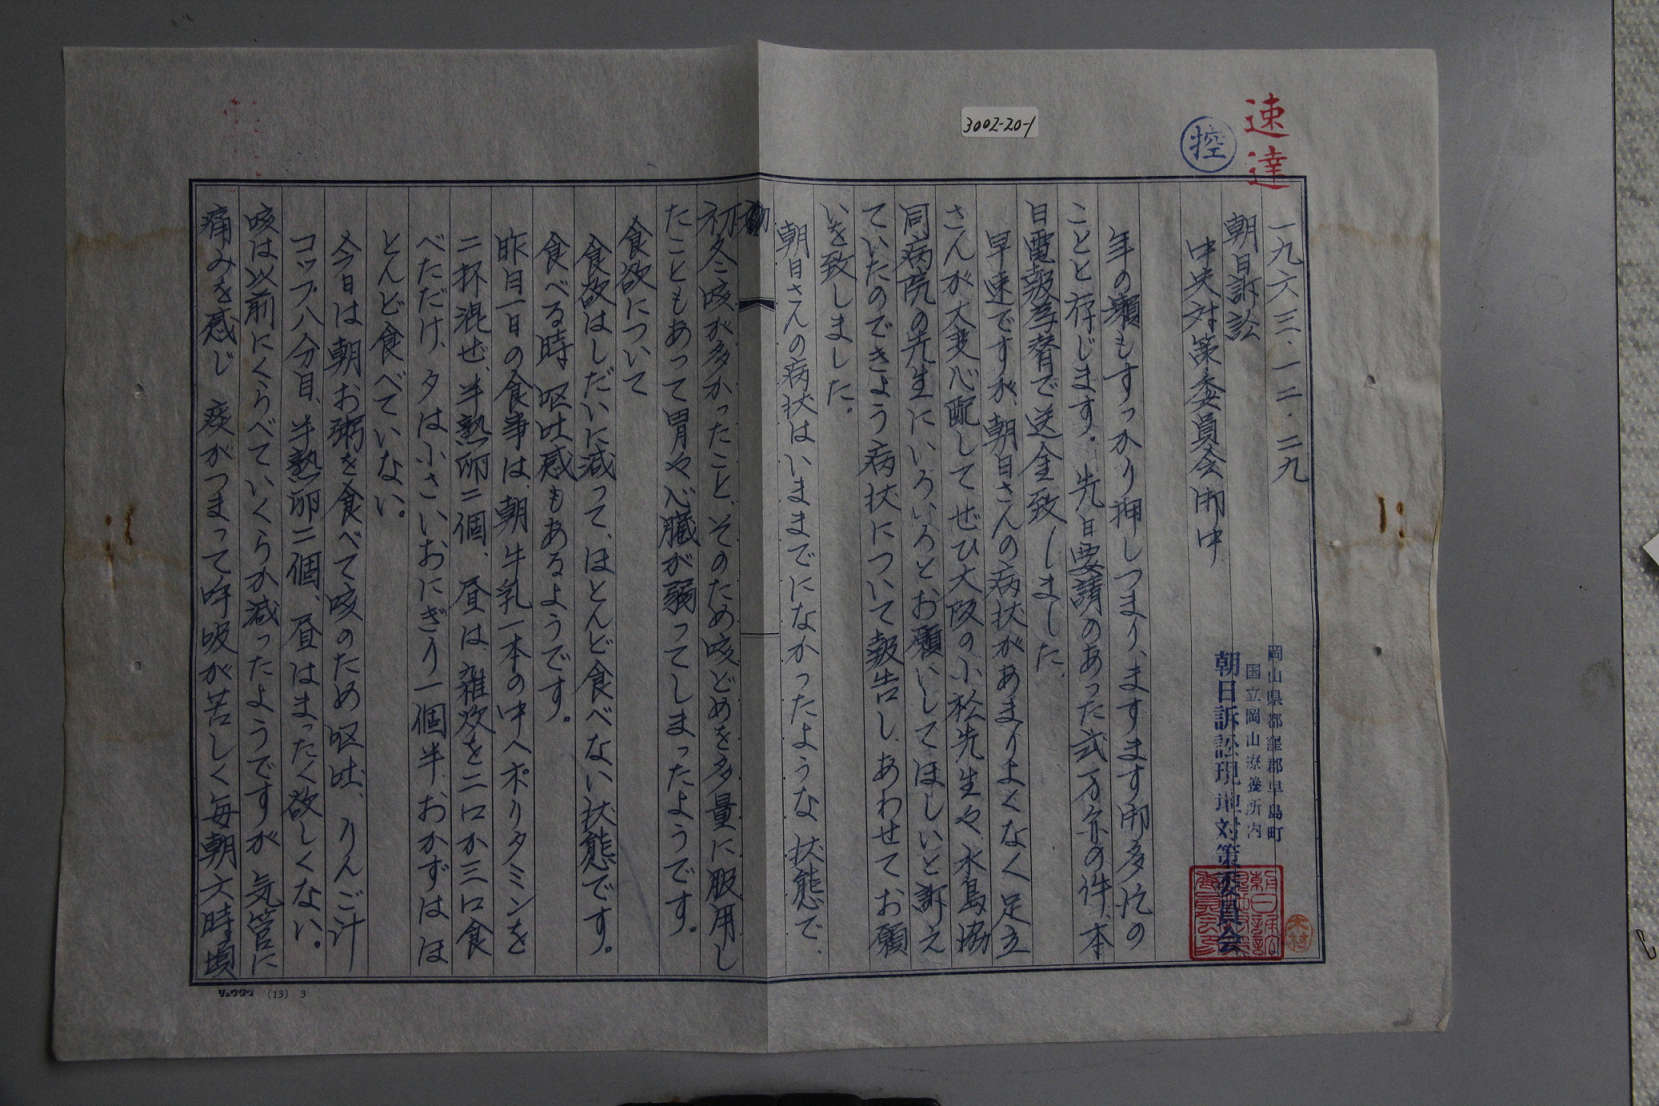 速達
控
3002-20-1
一九六三・一二・二九
岡山県都窪郡早島町
国立岡山療養所内
朝日訴訟現地対策委員会
朝日訴訟
中央対策委員会御中
年の瀬もすっかり押しつまり、ますます御多忙の
ことと存じます。先日要請のあった弐万弁の件、本
日電報為替で送金致しました。
早速ですが朝日さんの病状があまりよくなく足立
さんが大変心配してぜひ大阪の小松先生や、水島協
同病院の先生にいろいろとお願いしてほしいと訴え
ていたのできょう病状について報告し、あわせてお願
いを致しました。
朝日さんの病状はいままでになかったような状態で、
初冬に咳が多かったこと、そのため咳どめを多量に服用し
たこともあって胃や心臓が弱ってしまったようです。
食欲について
食欲はしだいに減って、ほとんど食べない状態です。
食べる時、呕吐感もあるようです。
昨日一日の食事は、朝牛乳一本の中へポリタミンを
二杯混ぜ、半熟卵二個、昼は雑炊を二口か三口食
べただけ、夕は小さいおにぎり一個半、おかずはほ
とんど食べていない。
今日は朝お粥を食べて咳のため呕吐、りんご汁
コップ八分目、半熟卵二個、昼はまったく欲しくない。
咳は以前にくらべていくらか減ったようですが、気管に
痛みを感じ 痰がつまって呼吸が苦しく毎朝六時頃
リュウグウ (13) 3